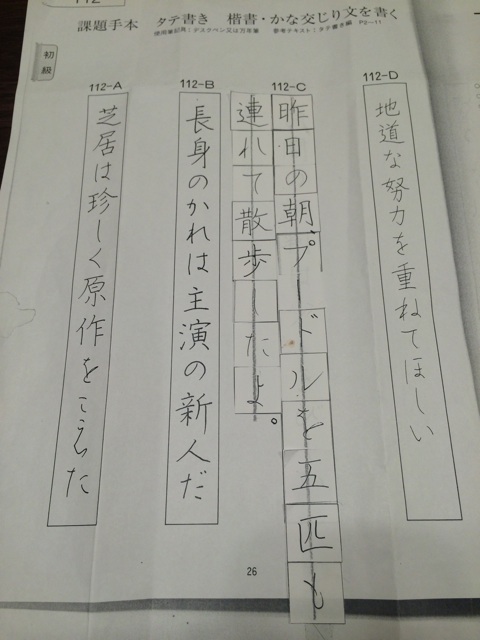 112
課題手本 タテ書き 楷書・かな交じり文を書く
使用筆記具:デスクペン又は万年筆 参考テキスト:タテ書き編 P2~11
初級
112-D
地道な努力を重ねてほしい
112-C
昨日の朝、プードルを五匹も
連れて散歩したよ。
112-B
長身のかれは主演の新人だ
112-A
芝居は珍しく原作をこえた
26